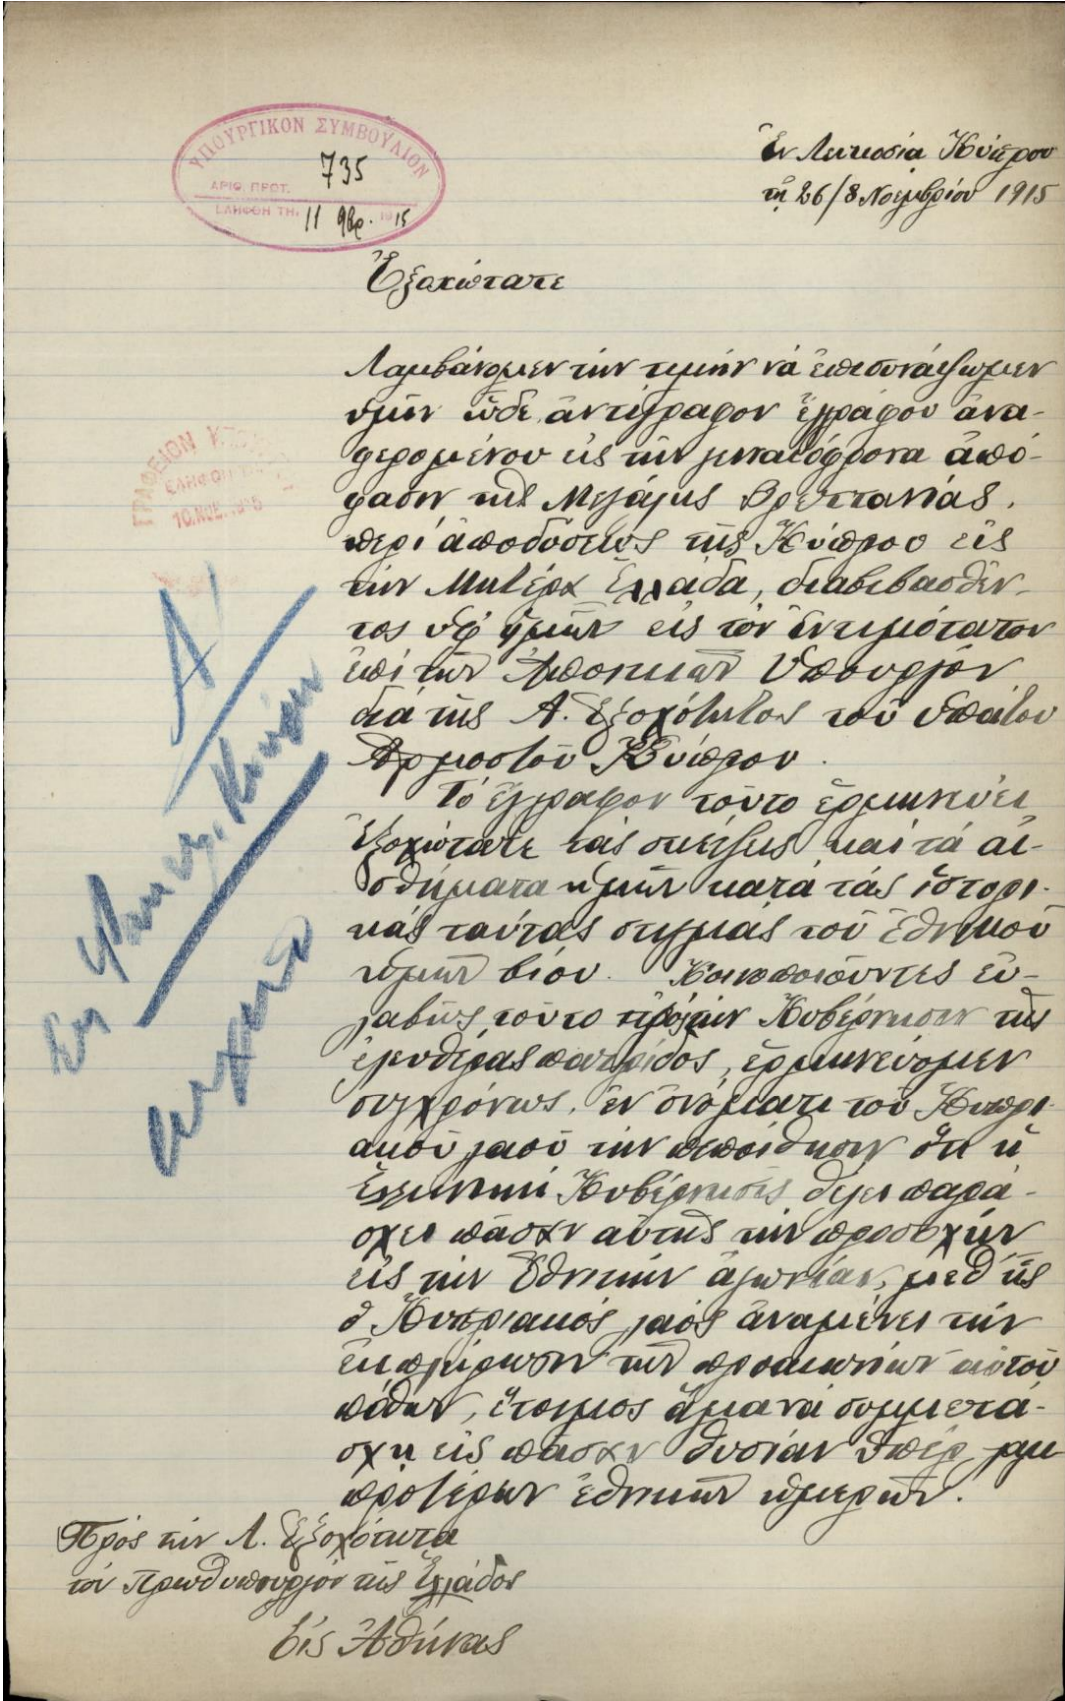 ΥΠΟΥΡΓΙΚΟΝ ΣΥΜΒΟΥΛΙΟΝ
735
ΑΡΙΘ. ΠΡΩΤ.
ΕΛΗΦΘΗ ΤΗ. 11 9βρ. 1915
Ἐν Λευκωσίᾳ Κύπρου
τῇ 26/8 Νοεμβρίου 1915
Ἐξοχώτατε
Λαμβάνομεν τὴν τιμὴν νὰ ἐπισυνάψωμεν
ὑμῖν ὧδε ἀντίγραφον ἐγγράφου ἀνα-
φερομένου εἰς τὴν μεγαλόφρονα ἀπό-
φασιν τῆς Μεγάλης Βρεττανίας
περὶ ἀποδόσεως τῆς Κύπρου εἰς
τὴν Μητέρα Ἑλλάδα, διαβιβασθέν-
τος ὑφ' ἡμῶν εἰς τὸν ἐντιμότατον
ἐπὶ τῶν Ἀποικιῶν Ὑπουργὸν
διὰ τῆς Α. Ἐξοχότητος τοῦ Ὑπάτου
Ἁρμοστοῦ Κύπρου.
Τὸ ἔγγραφον τοῦτο ἑρμηνεύει
Ἐξοχώτατε τὰς σκέψεις καὶ τὰ αἰ-
σθήματα ἡμῶν κατὰ τὰς ἱστορι-
κὰς ταύτας στιγμὰς τοῦ ἐθνικοῦ
ἡμῶν βίου. Κοινοποιοῦντες εὐ-
λαβῶς τοῦτο πρὸς τὴν Κυβέρνησιν τῆς
ἐλευθέρας πατρίδος, ἑρμηνεύομεν
συγχρόνως, ἐν ὀνόματι τοῦ Κυπρι-
ακοῦ λαοῦ τὴν πεποίθησιν ὅτι ἡ
Ἑλληνικὴ Κυβέρνησις θέλει παρά-
σχει πᾶσαν αὐτῆς τὴν προσοχὴν
εἰς τὴν ἐθνικὴν ἀγωνίαν, μεθ' ἧς
ὁ Κυπριακὸς λαὸς ἀναμένει τὴν
ἐκπλήρωσιν τῶν προαιωνίων αὐτοῦ
πόθων, ἕτοιμος ἅμα νὰ συμμετά-
σχῃ εἰς πᾶσαν θυσίαν ὑπὲρ λαμ-
προτέρων ἐθνικῶν ἡμερῶν.
Πρὸς τὴν Α. Ἐξοχότητα
τὸν Πρωθυπουργὸν τῆς Ἑλλάδος
Εἰς Ἀθήνας
ΓΡΑΦΕΙΟΝ
ΕΛΗΦΘΗ
10. ΝΟΕ. 1915
Α'